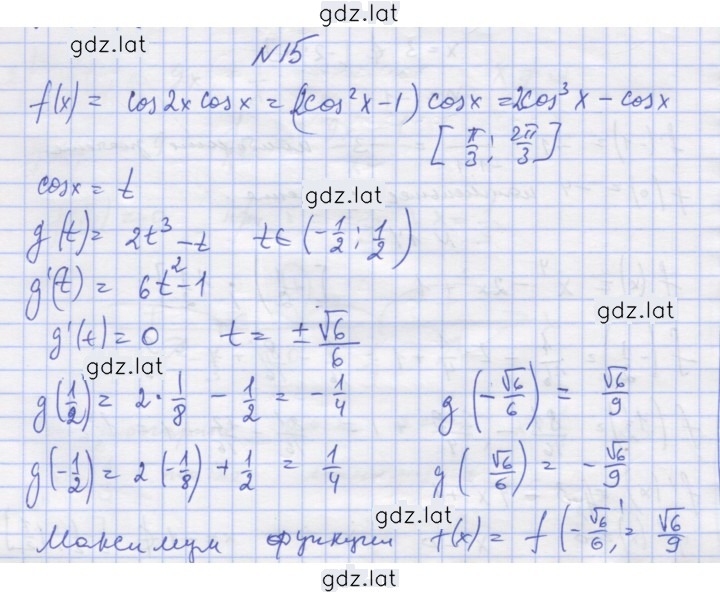 gdz.lat
gdz.lat
N15
f(x) = cos2x cosx = (2cos²x-1) cosx = 2cos³x - cosx
[π/3; 2π/3]
cosx = t
gdz.lat
g(t) = 2t³ - t t∈(-1/2; 1/2)
g'(t) = 6t² - 1
gdz.lat
g'(t) = 0 t = ±√6/6
gdz.lat
g(1/2) = 2·1/8 - 1/2 = -1/4 g(-√6/6) = √6/9
g(-1/2) = 2(-1/8) + 1/2 = 1/4 g(√6/6) = -√6/9
gdz.lat
Максимум функции f(x) = f(-√6/6) = √6/9
gdz.lat